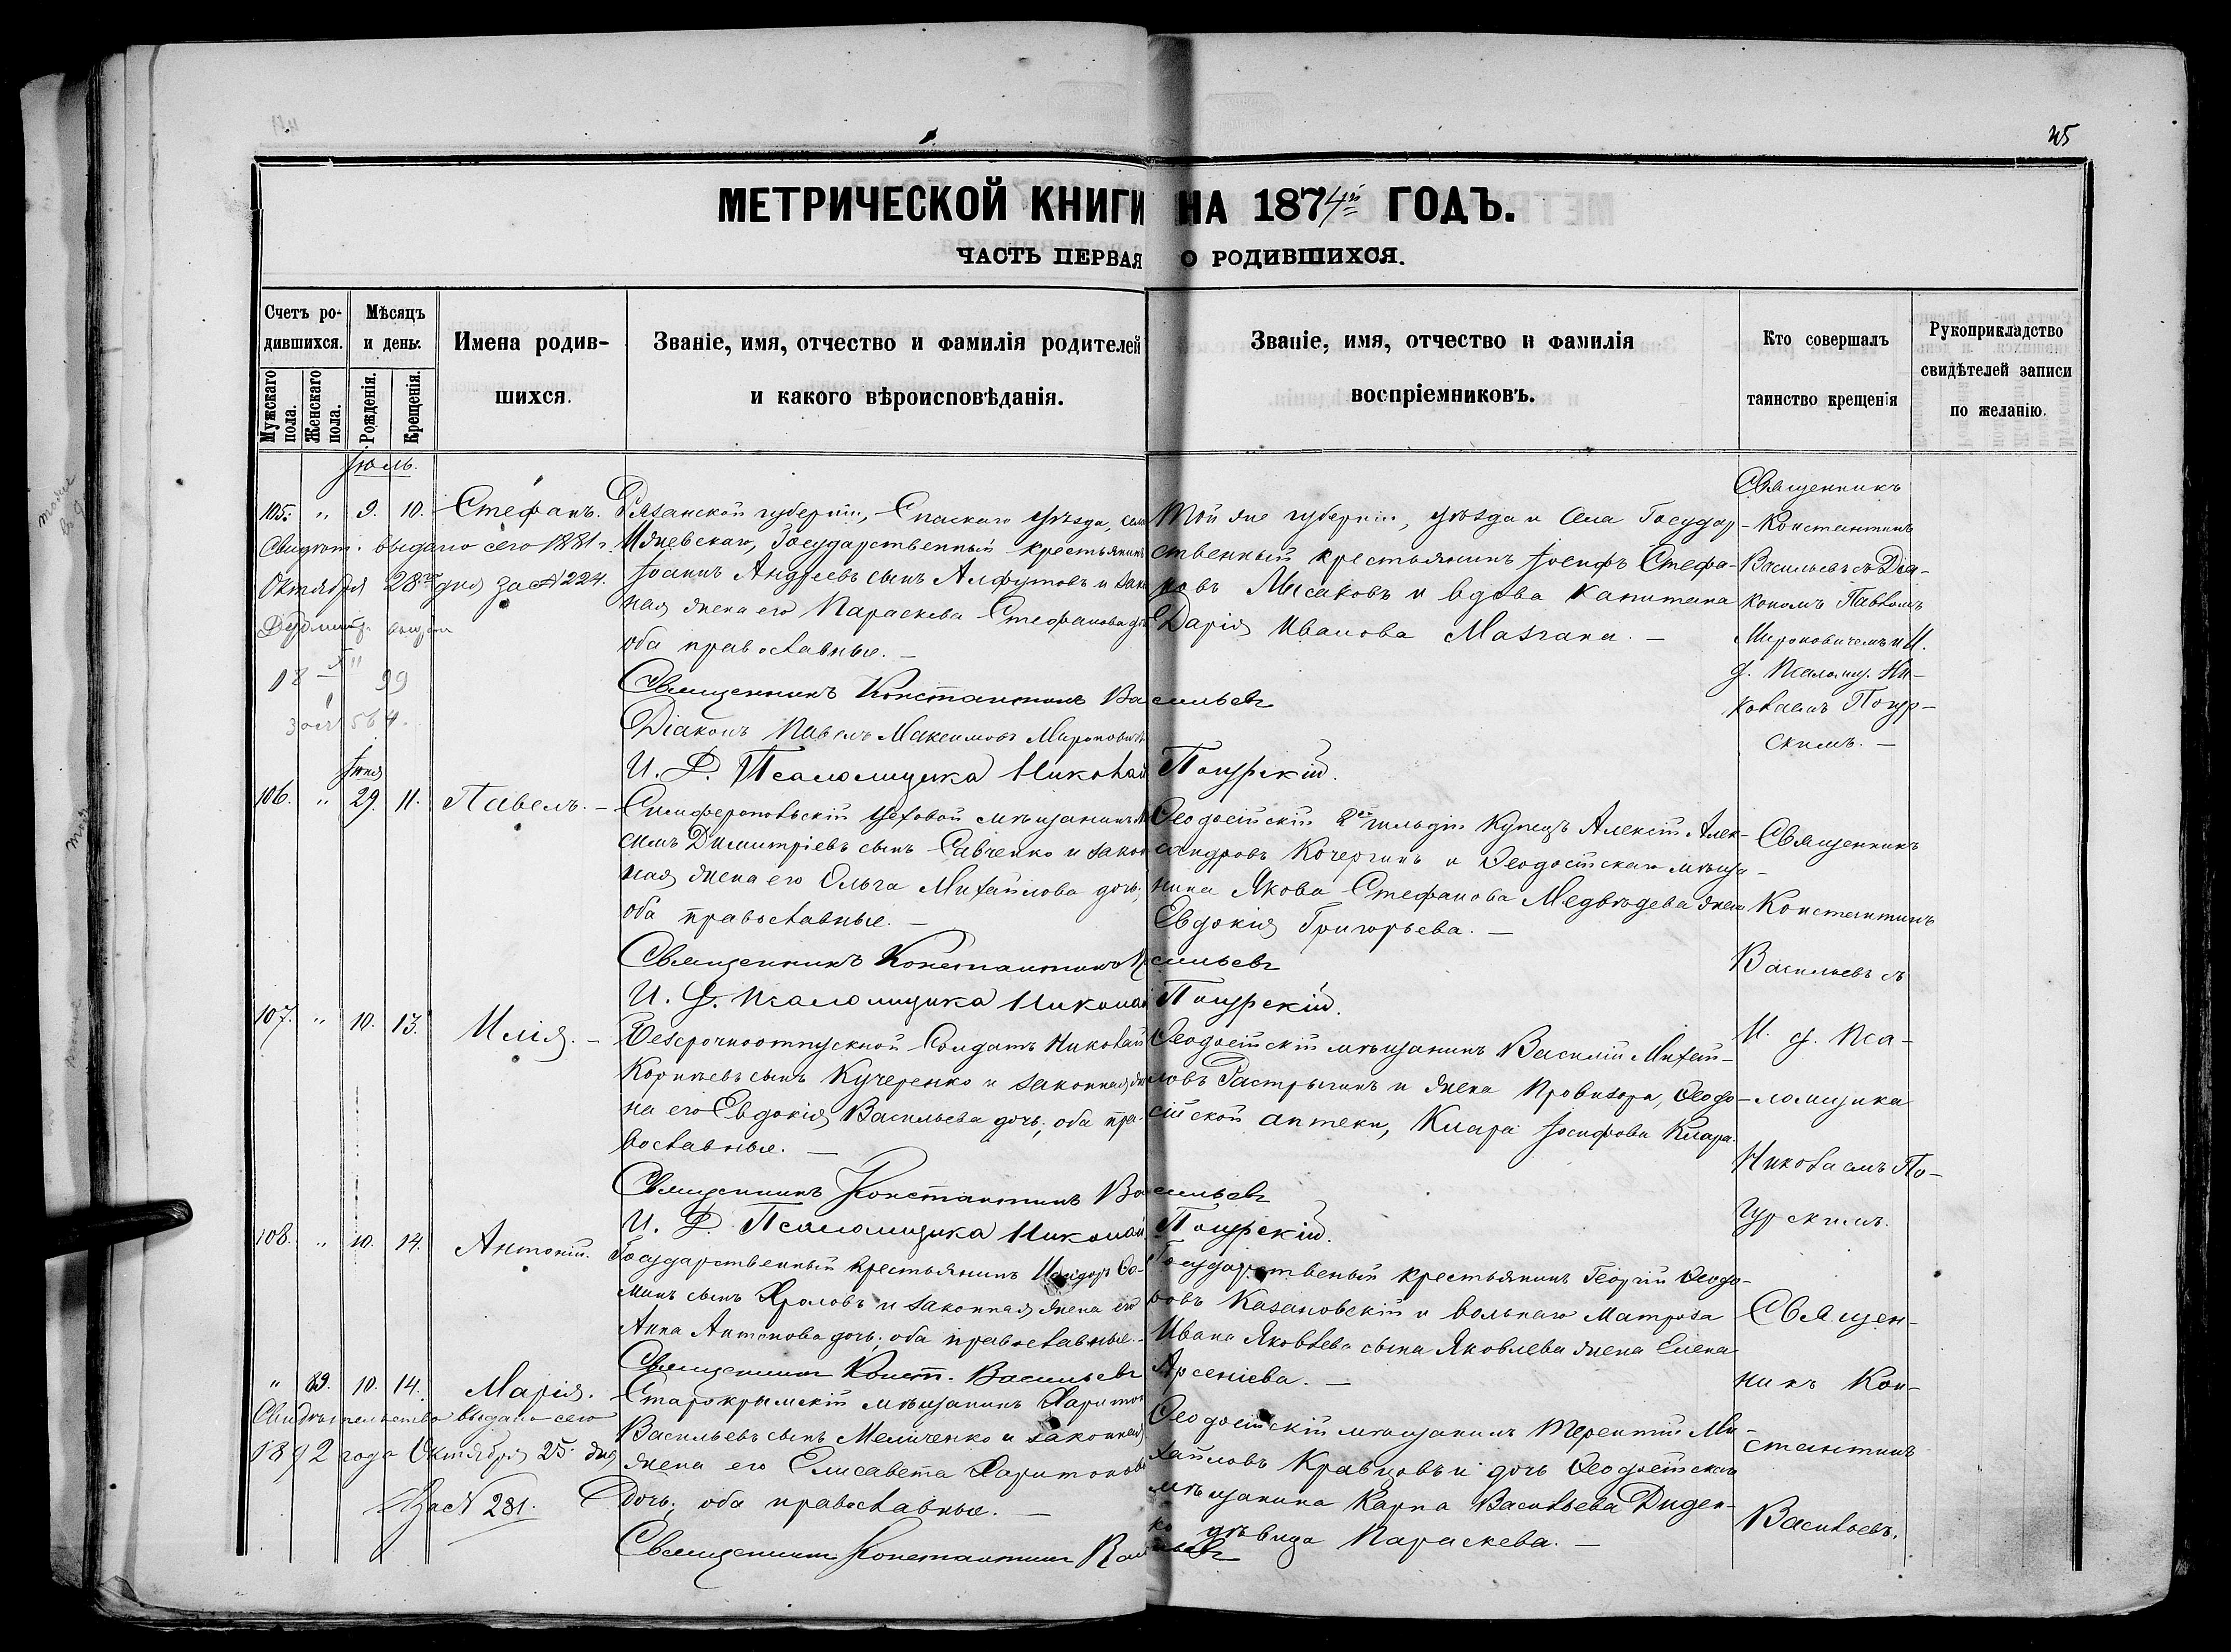 25
МЕТРИЧЕСКОЙ КНИГИ НА 1874й ГОДЪ.
ЧАСТЬ ПЕРВАЯ О РОДИВШИХСЯ.
Счетъ родившихся.
Мужскаго пола.
Женскаго пола.
Мѣсяцъ и день.
Рожденія.
Крещенія.
Имена родив-
шихся.
Званіе, имя, отчество и фамилія родителей
и какого вѣроисповѣданія.
Званіе, имя, отчество и фамилія
воспріемниковъ.
Кто совершалъ
таинство крещенія
Рукоприкладство
свидѣтелей записи
по желанію.
Іюль.
105. " 9. 10. Стефанъ.
Свидѣт. выдано сего 1881 г.
Октября 28го дня за № 224.
Рязанской губерніи, Спаскаго уѣзда, села
Государственный крестьянинъ
Іоаннъ Андреевъ сынъ Алфутовъ и закон
ная жена его Параскева Стефанова
оба православные. —
Священникъ Константинъ Васильевъ
Діаконъ Павелъ Максимовъ Мироновичъ
И. Д. Псаломщика Николай Погурскій.
Той же губерніи, уѣзда и села Государ-
ственный крестьянинъ Іосифъ Стефа-
новъ Мисаковъ и вдова капитана
Дарія Иванова Мазгана. —
Священникъ
Константинъ
Васильевъ съ Діа-
кономъ Павломъ
Мироновичемъ и И.
д. Псаломщ. Ни-
колаемъ Погур-
скимъ. —
Іюня
106. " 29. 11. Павелъ. —
Симферопольскій цеховой мѣщанинъ
симъ Димитріевъ сынъ Савченко и закон
ная жена его Ольга Михайлова дочь,
оба православные. —
Священникъ Константинъ Васильевъ
И. Д. Псаломщика Николай Погурскій.
Ѳеодосійскій 2й гильдіи Купецъ Алексій Алек-
сандровъ Кочергинъ и Ѳеодосійскаго мѣща-
нина Якова Стефанова Медвѣдева жена
Евдокія Григорьева. —
Священникъ
Константинъ
Васильевъ съ
И. д. Пса-
ломщика
Николаемъ По-
гурскимъ.
107. " 10. 13. Илія. —
Безсрочноотпускной Солдатъ Николай
Корнѣевъ сынъ Кучеренко и законная же
на его Евдокія Васильева дочь, оба пра-
вославные. —
Священникъ Константинъ Васильевъ
И. Д. Псаломщика Николай Погурскій.
Ѳеодосійскій мѣщанинъ Василій Михай-
ловъ Растрыгинъ и жена Провизора, Ѳеодо-
сійской аптеки, Клара Іосифова Клара.
108. " 10. 14. Антоній.
Государственный крестьянинъ Исидоръ Ѳо-
минъ сынъ Фроловъ и законная жена его
Анна Антонова дочь, оба православные. —
Священникъ Конст. Васильевъ
Государственный крестьянинъ Георгій Ѳеодо-
ровъ Казановскій и вольнаго Матроза
Ивана Яковлева сына Яковлева жена Елена
Арсеніева. —
Священ-
никъ Кон-
стантинъ
Васильевъ.
" 89. 10. 14. Марія.
Свидѣтельство выдано сего
1892 года Октября 25 дня
За № 281.
Старокрымскій мѣщанинъ Харитонъ
Васильевъ сынъ Мельченко и законная
жена его Елисавета Харитонова
Дочь, оба православные. —
Священникъ Константинъ Васильевъ
Ѳеодосійскій мѣщанинъ Терентій Ми-
хайловъ Кравцовъ и дочь Ѳеодосійскаго
мѣщанина Карпа Васильева Диден-
ко дѣвица Параскева. —